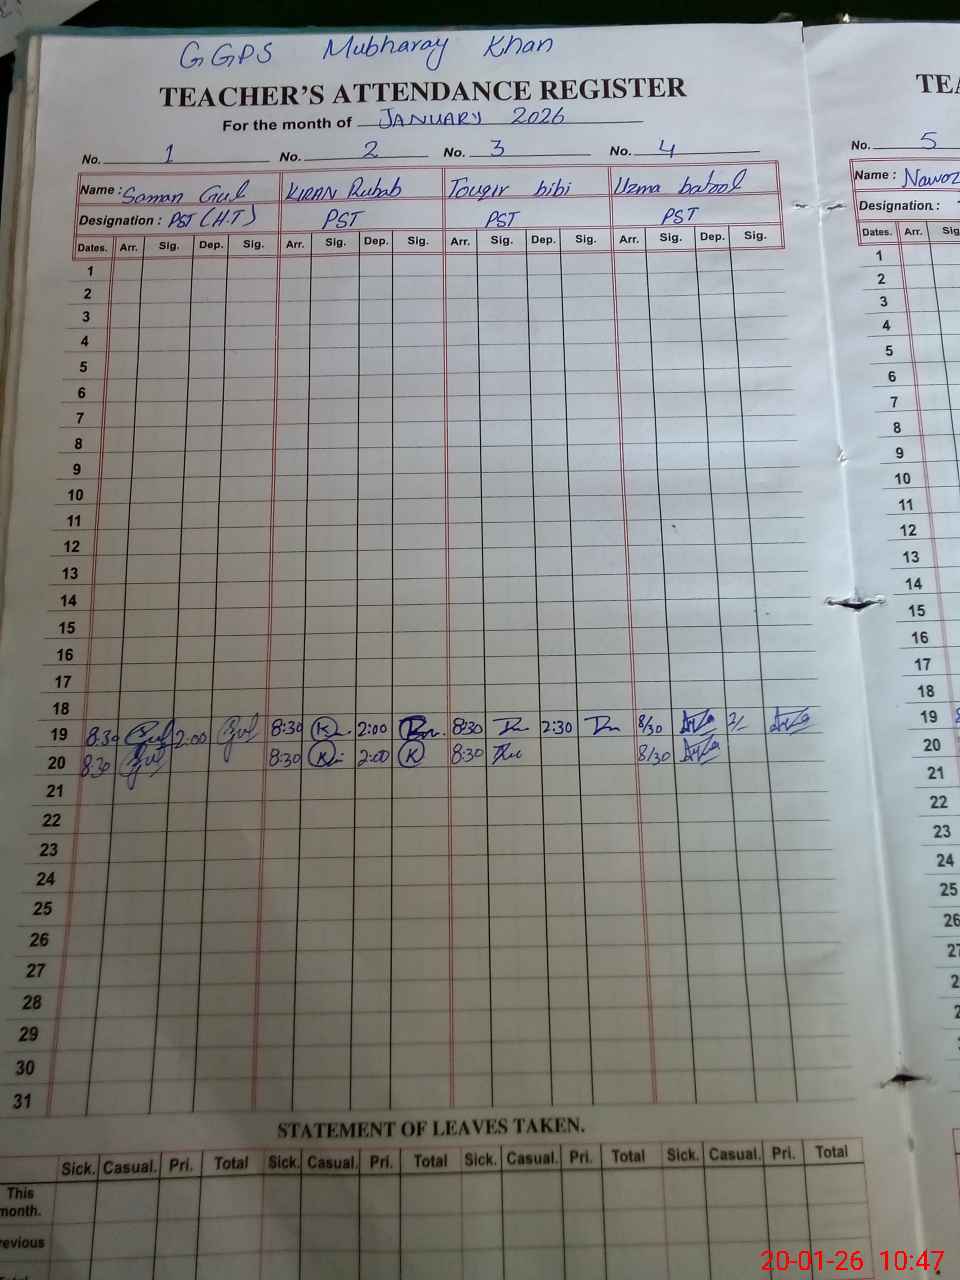 GGPS Mubharay Khan
TEACHER'S ATTENDANCE REGISTER TEA
For the month of JANUARY 2026
No. 1 No. 2 No. 3 No. 4 No. 5
Name : Saman Gul KIRAN Rubab Touqir bibi Uzma batool Name : Nawaz
Designation : PST (H.T) PST PST PST Designation :
Dates. Arr. Sig. Dep. Sig. Arr. Sig. Dep. Sig. Arr. Sig. Dep. Sig. Arr. Sig. Dep. Sig. Dates. Arr. Sig
1 1
2 2
3 3
4 4
5 5
6 6
7 7
8 8
9 9
10 10
11 11
12 12
13 13
14 14
15 15
16 16
17 17
18 18
19 8:30 Gul 2:00 Gul 8:30 K 2:00 8:30 2:30 8/30 2/ 19 8
20 8:30 Gul 8:30 K 2:00 K 8:30 8/30 20 8
21 21
22 22
23 23
24 24
25 25
26 26
27 27
28 2
29 2
30
31
STATEMENT OF LEAVES TAKEN.
Sick. Casual. Pri. Total Sick. Casual. Pri. Total Sick. Casual. Pri. Total Sick. Casual. Pri. Total
This
month.
revious
20-01-26 10:47